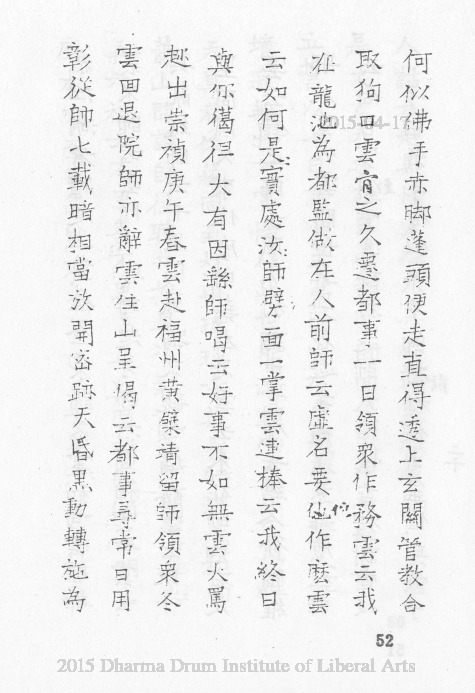 何似佛手赤脚蓬頭便走直得透上玄關管教合
取狗口雲肯之久遷都事一日領衆作務雲云我
在龍池為都監做在人前師云虛名要他作麼雲
云如何是實處汝師劈面一掌雲連棒云我終日
與你偈徑大有因繇師喝云好事不如無雲大罵
趂出崇禎庚午春雲赴福州黃檗請留師領衆冬
雲回退院師亦辭雲住山呈偈云都事尋常日用
彰從師七載暗相當放開密跡天昏黑動轉施為
2015-04-17
52
2015 Dharma Drum Institute of Liberal Arts